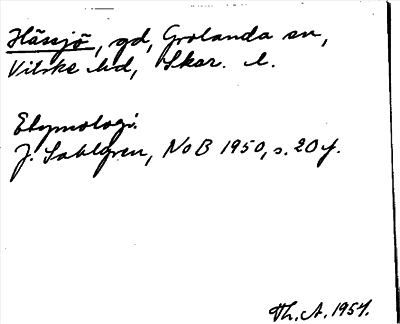 Hässjö, gd, Grolanda sn,
Vilske hd, Skar. l.
Etymologi.
J. Sahlgren, NoB 1950, s. 20 f.
Th. A. 1957.